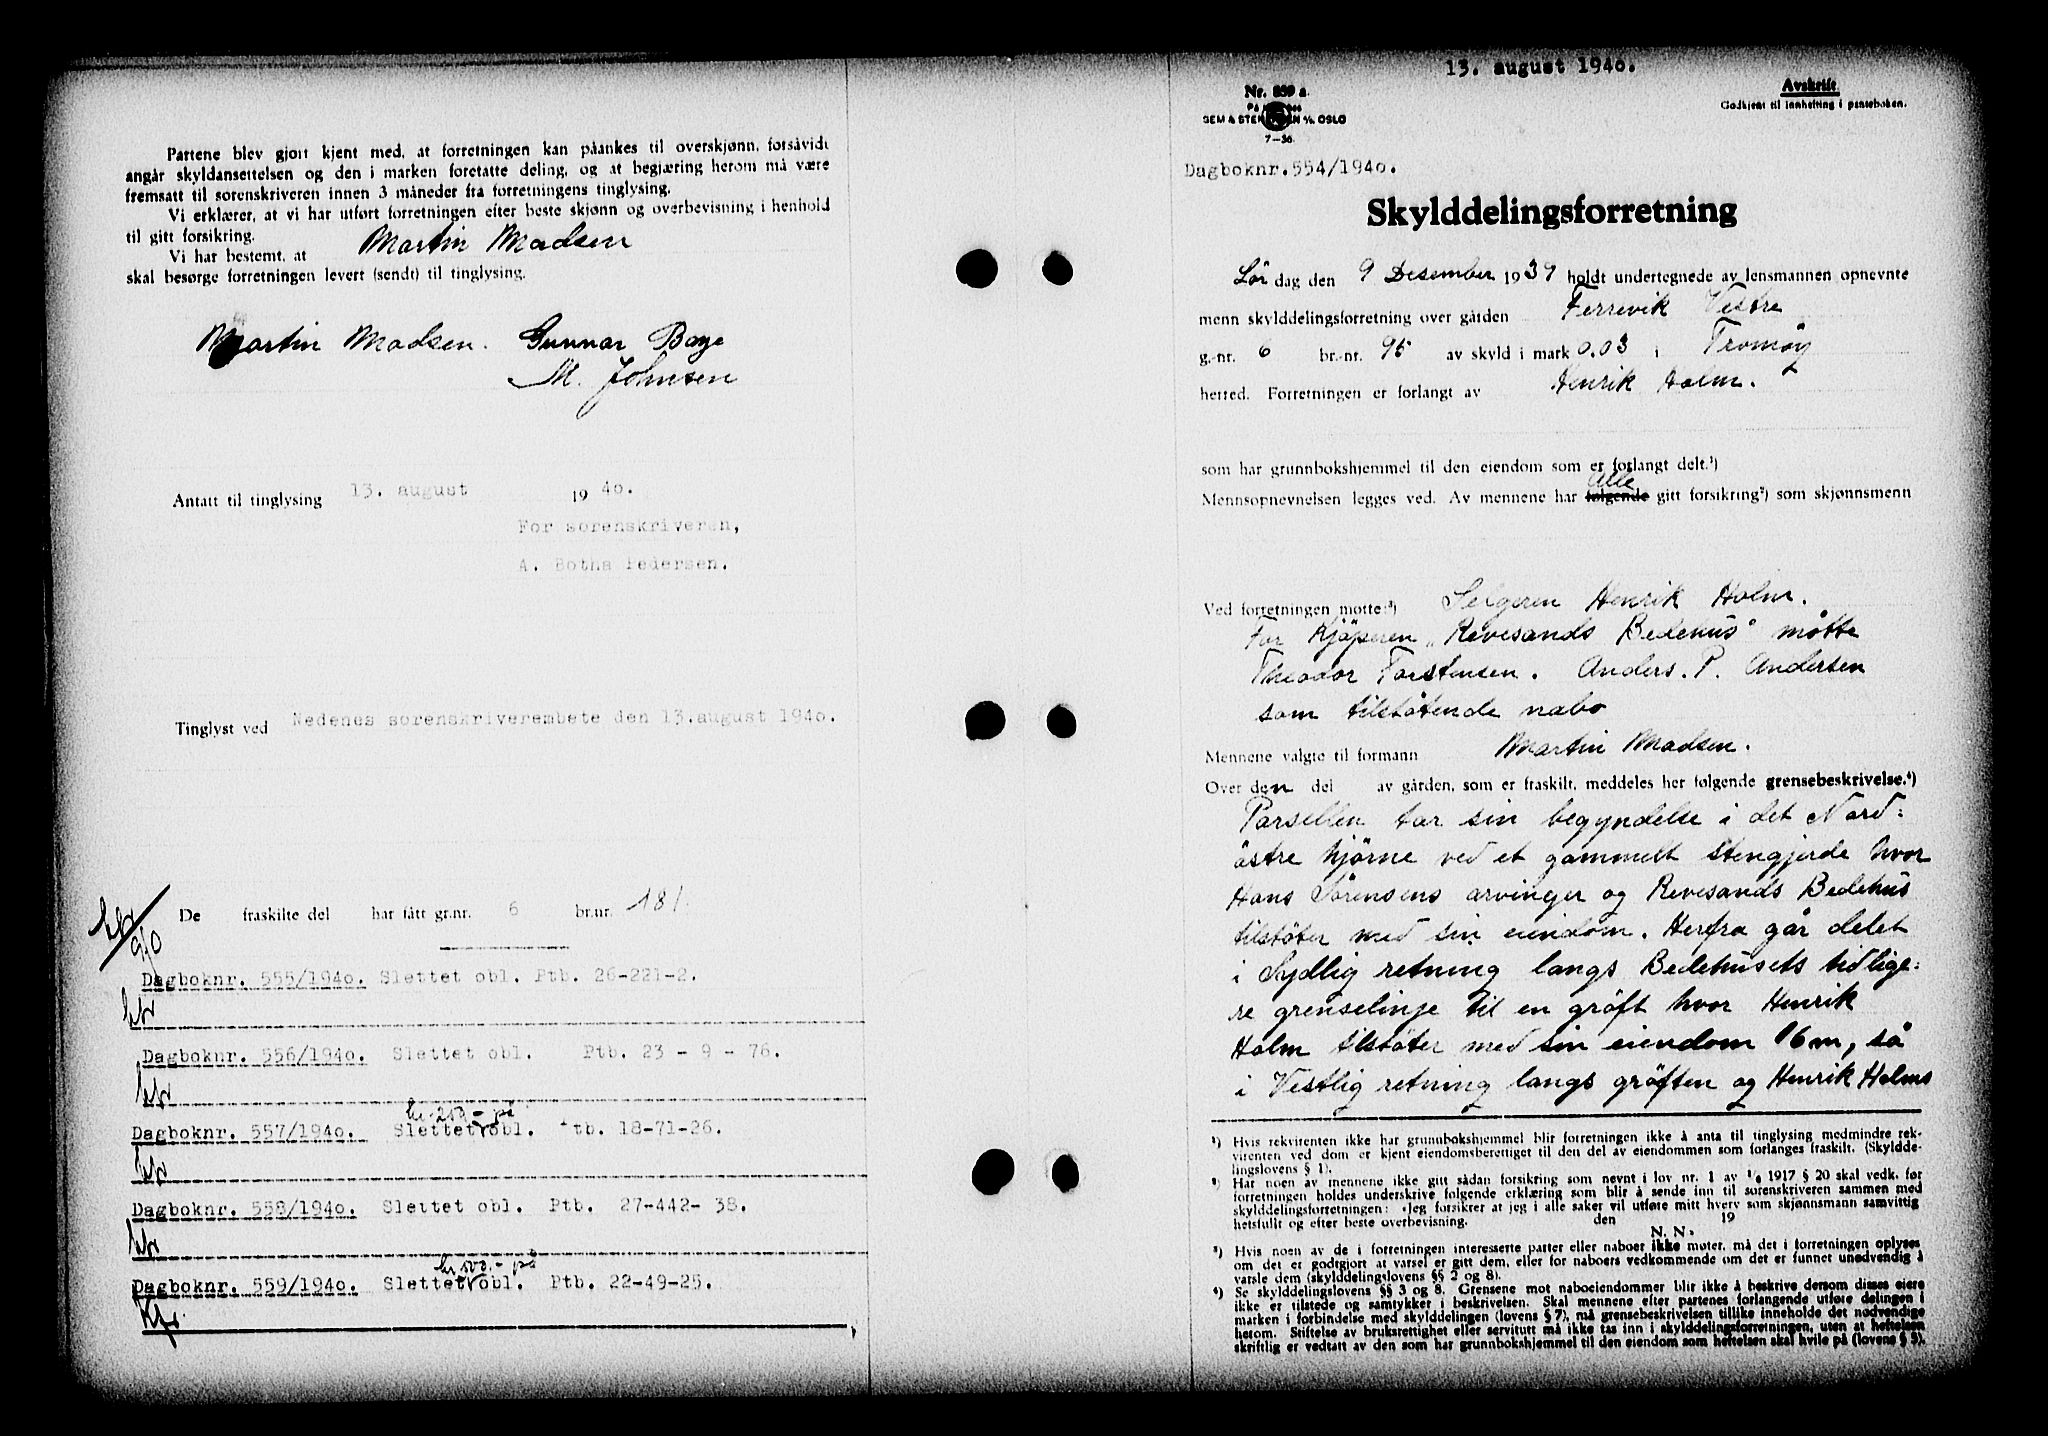 Partene blev gjort kjent med, at forretningen kan påankes til overskjønn, forsåvidt
angår skyldansettelsen og den i marken foretatte deling, og at begjæring herom må være
fremsatt til sorenskriveren innen 3 måneder fra forretningens tinglysing.
Vi erklærer, at vi har utført forretningen efter beste skjønn og overbevisning i henhold
til gitt forsikring.
Vi har bestemt, at Martin Madsen
skal besørge forretningen levert (sendt) til tinglysing.
Martin Madsen. Gunnar Bage
M. Johnsen
Antatt til tinglysing 13. august 1940.
For sorenskriveren,
A. Botha Pedersen.
Tinglyst ved Nedenes sorenskriverembete den 13.august 1940.
De fraskilte del har fått gr.nr. 6 br.nr. 181.
Dagboknr. 555/1940. Slettet obl. Ptb. 26-221-2.
Dagboknr. 556/1940. Slettet obl. Ptb. 23 - 9 - 76.
kr. 200.- på
Dagboknr. 557/1940. Slettet obl. Ptb. 18-71-26.
Dagboknr. 558/1940. Slettet obl. Ptb. 27-442- 38.
kr 500.- på
Dagboknr. 559/1940. Slettet obl. Ptb. 22-49-25.
13. august 1940.
Nr. 859 a
Avskrift
Godkjent til innhefting i panteboken.
OSLO
7-36
Dagboknr.554/1940.
Skylddelingsforretning
Lør dag den 9 Desember 1939 holdt undertegnede av lensmannen opnevnte
menn skylddelingsforretning over gården Færvik Vestre
g.-nr. 6 br.-nr. 95 av skyld i mark 0.03 i Tromøy
herred. Forretningen er forlangt av Henrik Holm.
som har grunnbokshjemmel til den eiendom som er forlangt delt.¹)
Alle
Mennsopnevnelsen legges ved. Av mennene har følgende gitt forsikring²) som skjønnsmenn
Ved forretningen møtte:³) Selgeren Henrik Holm.
For Kjøperen "Revesands Bedehus" møtte
Theodor Torstensen. Anders. P. Andersen
som tilstøtende nabo
Mennene valgte til formann Martin Madsen.
Over den del av gården, som er fraskilt, meddeles her følgende grensebeskrivelse.⁴)
Parsellen tar sin begyndelse i det Nord=
østre hjørne ved et gammelt stengjerde hvor
Hans Sørensens arvinger og Revesands Bedehus
tilstøter med sin eiendom. Herfra går delet
i Sydlig retning langs Bedehusets tidlige=
re grenselinje til en grøft hvor Henrik
Holm tilstøter med sin eiendom 16 m, så
i Vestlig retning langs grøften og Henrik Holms
¹) Hvis rekvirenten ikke har grunnbokshjemmel blir forretningen ikke å anta til tinglysing medmindre rek-
virenten ved dom er kjent eiendomsberettiget til den del av eiendommen som forlanges fraskilt. (Skyldde-
lingslovens § 1).
²) Har noen av mennene ikke gitt sådan forsikring som nevnt i lov nr. 1 av 1/6 1917 § 20 skal vedk. før
forretningen holdes underskrive følgende erklæring som blir å sende inn til sorenskriveren sammen med
skylddelingsforretningen: «Jeg forsikrer at jeg i alle saker vil utføre mitt hverv som skjønnsmann samvittig
hetsfullt og efter beste overbevisning. den 19
N. N.»
³) Hvis noen av de i forretningen interesserte parter eller naboer ikke møter, må det i forretningen oplyses
om det er godtgjort at varsel er gitt dem, eller for naboers vedkommende om det er funnet unødvendig å
varsle dem (skylddelingslovens §§ 2 og 8).
⁴) Se skylddelingslovens §§ 3 og 8. Grensene mot naboeiendommer blir ikke å beskrive dersom disses eiere
ikke er tilstede og samtykker i beskrivelsen. Skal mennene efter partenes forlangende utføre delingen i
marken i forbindelse med skylddelingen (lovens § 7), må grensebeskrivelsen tillike inneholde det nødvendige
herom. Stiftelse av bruksrettighet eller servitutt må ikke tas inn i skylddelingsforretningen, uten at heftelsen
skriftlig er vedtatt av den som har grunnbokshjemmel til den eiendom som heftelsen skal hvile på (lovens § 5).